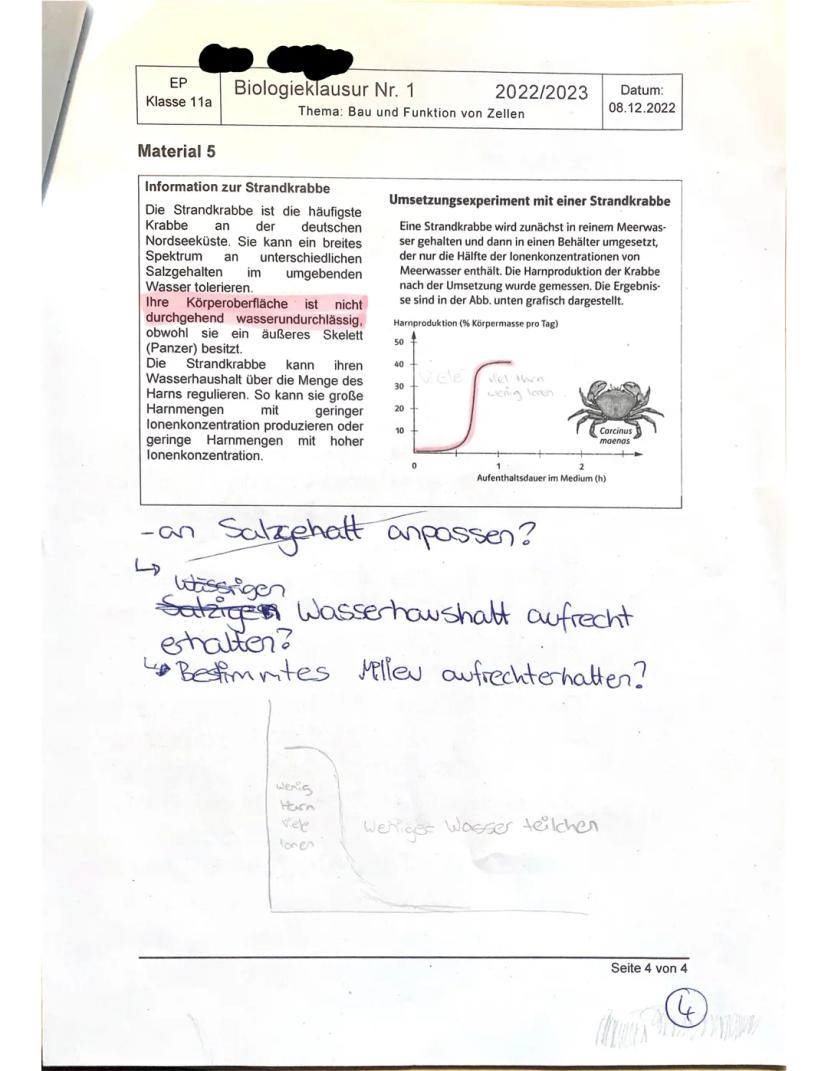 EP
Klasse 11a
Biologieklausur Nr. 1 2022/2023
Thema: Bau und Funktion von Zellen
Datum:
08.12.2022
Material 5
Information zur Strandkrabbe
Die Strandkrabbe ist die häufigste
Krabbe an der deutschen
Nordseeküste. Sie kann ein breites
Spektrum an unterschiedlichen
Salzgehalten im umgebenden
Wasser tolerieren.
Ihre Körperoberfläche ist nicht
durchgehend wasserundurchlässig,
obwohl sie ein äußeres Skelett
(Panzer) besitzt.
Die Strandkrabbe kann ihren
Wasserhaushalt über die Menge des
Harns regulieren. So kann sie große
Harnmengen mit geringer
Ionenkonzentration produzieren oder
geringe Harnmengen mit hoher
Ionenkonzentration.
Umsetzungsexperiment mit einer Strandkrabbe
Eine Strandkrabbe wird zunächst in reinem Meerwas-
ser gehalten und dann in einen Behälter umgesetzt,
der nur die Hälfte der Ionenkonzentrationen von
Meerwasser enthält. Die Harnproduktion der Krabbe
nach der Umsetzung wurde gemessen. Die Ergebnis-
se sind in der Abb. unten grafisch dargestellt.
Harnproduktion (% Körpermasse pro Tag)
50
40
30
20
10
viele
viel Harn
wenig Ionen
Carcinus
maenas
0 1 2
Aufenthaltsdauer im Medium (h)
-an Salzgehalt anpassen?
↳ Wässrigen
Salzigen Wasserhaushalt aufrecht
erhalten?
↳ Bestimmtes Milieu aufrechterhalten?
wenig
Harn
viele
Ionen
weniger Wasser teilchen
Seite 4 von 4
4